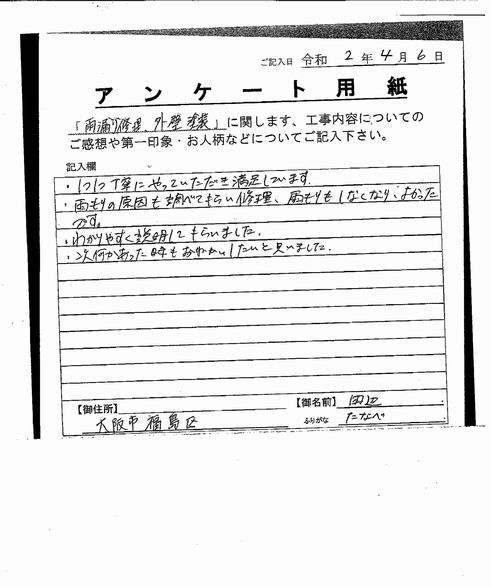 ご記入日 令和 2 年 4 月 6 日
アンケート用紙
「雨漏り修理、外壁塗装」に関します、工事内容についての
ご感想や第一印象・お人柄などについてご記入下さい。
記入欄
・1つ1つ丁寧にやっていただき満足しています。
・雨もりの原因も調べてもらい修理、雨もりもしなくなり、よかった
です。
・わかりやすく説明してもらいました。
・次何かあった時もおねがいしたいと思いました。
【御住所】 大阪市福島区
【御名前】 田辺
ふりがな たなべ